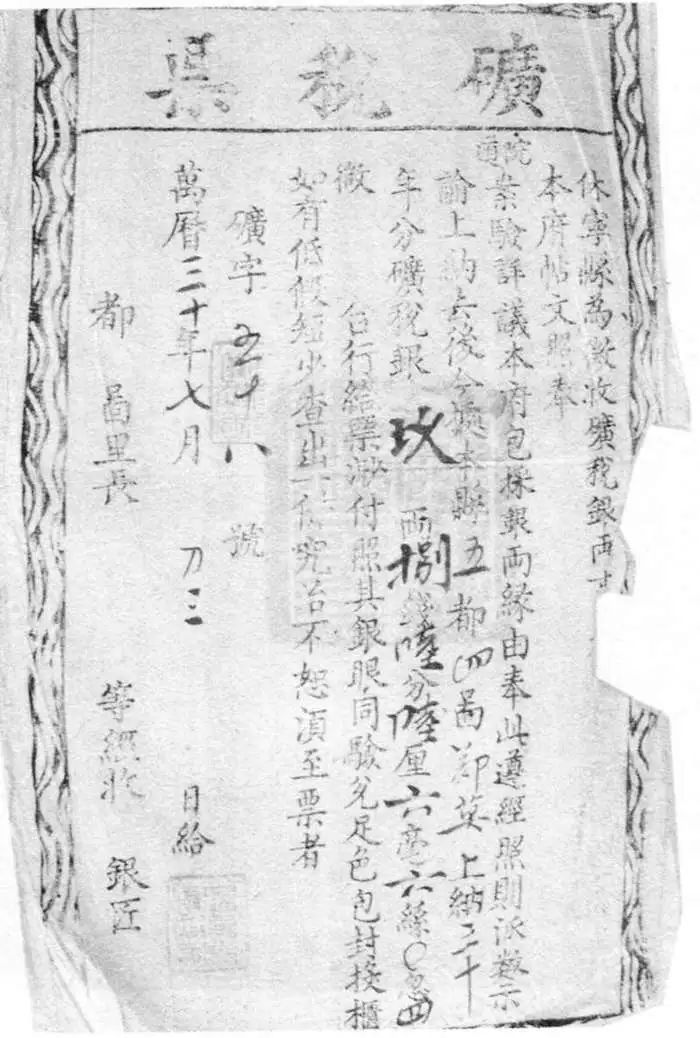 礦稅票
休寧縣為徵收礦稅銀兩事
本府帖文照奉
院
道案驗詳議本府包採銀兩緣由奉此遵經照則派徵示
諭上納去後今據本縣五都四啚鄭英上納三十
年分礦稅銀玖兩捌錢陸分陸厘六毫六絲〇忽四
微 合行給票收付照其銀眼同驗兌足色包封投櫃
如有低假短少查出一体究治不恕湏至票者
礦字五十八號
萬曆三十年七月 日給
都 啚里長 等經收 銀匠